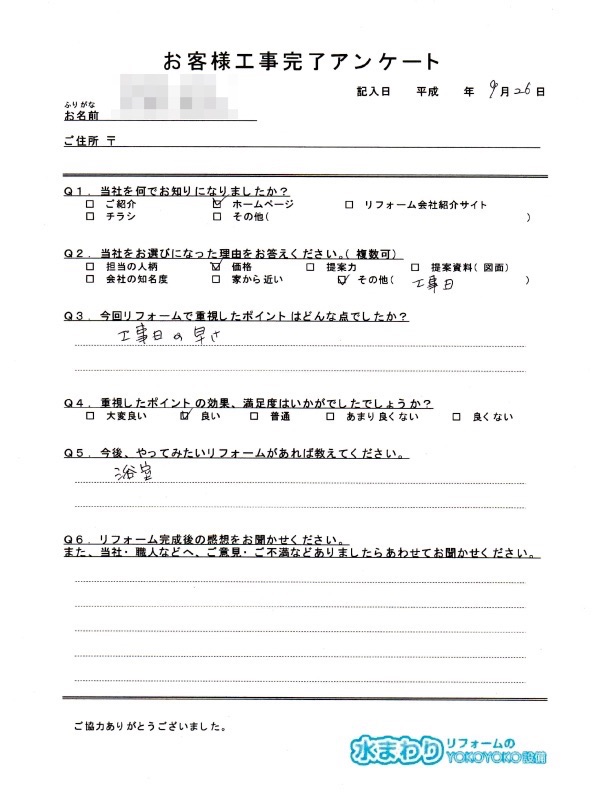 お客様工事完了アンケート
記入日 平成 年 9月26日
ふりがな
お名前
ご住所 〒
Q1．当社を何でお知りになりましたか？
□ ご紹介 ☑ ホームページ □ リフォーム会社紹介サイト
□ チラシ □ その他( )
Q2．当社をお選びになった理由をお答えください。( 複数可)
□ 担当の人柄 ☑ 価格 □ 提案力 □ 提案資料( 図面)
□ 会社の知名度 □ 家から近い ☑ その他( 工事日 )
Q3．今回リフォームで重視したポイントはどんな点でしたか？
工事日の早さ
Q4．重視したポイントの効果、満足度はいかがでしたでしょうか？
□ 大変良い ☑ 良い □ 普通 □ あまり良くない □ 良くない
Q5．今後、やってみたいリフォームがあれば教えてください。
浴室
Q6．リフォーム完成後の感想をお聞かせください。
また、当社・職人などへ、ご意見・ご不満などありましたらあわせてお聞かせください。
ご協力ありがとうございました。
水まわりリフォームのYOKOYOKO設備